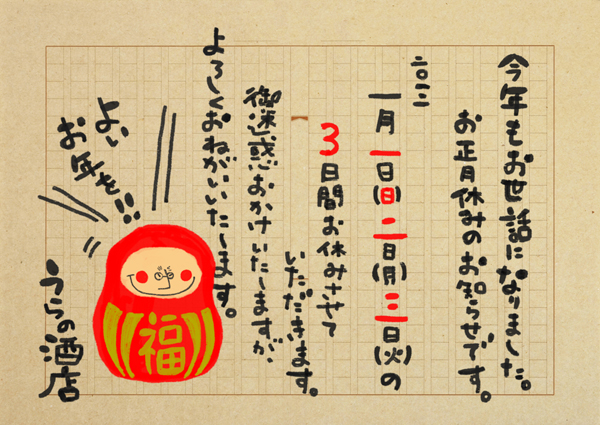 今年もお世話になりました。
お正月休みのお知らせです。
一月一日(日)二日(月)三日(火)の
3日間お休みさせて
いただきます。
御迷惑おかけいたしますが、
よろしくおねがいいたします。
よい
お年を!!
福
うらの酒店